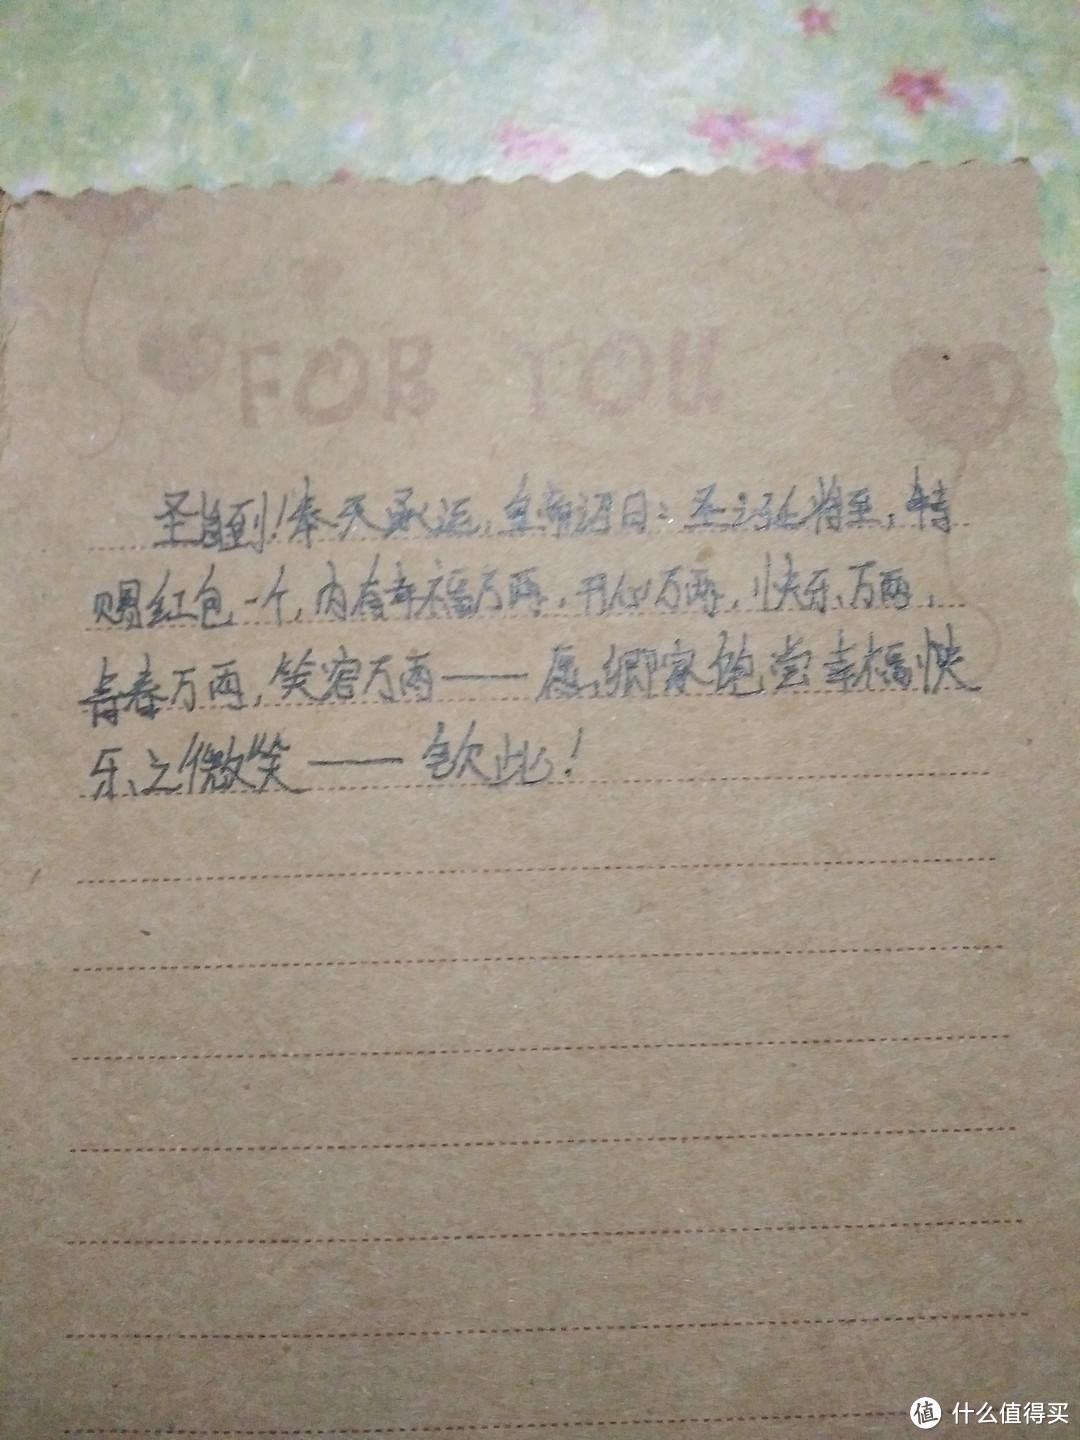 FOR YOU
圣旨到！奉天承运，皇帝诏曰：圣诞将至，特
赐红包一个，内有幸福万两，开心万两，快乐万两，
青春万两，笑容万两——愿卿家饱尝幸福快
乐之微笑——钦此！
值 什么值得买